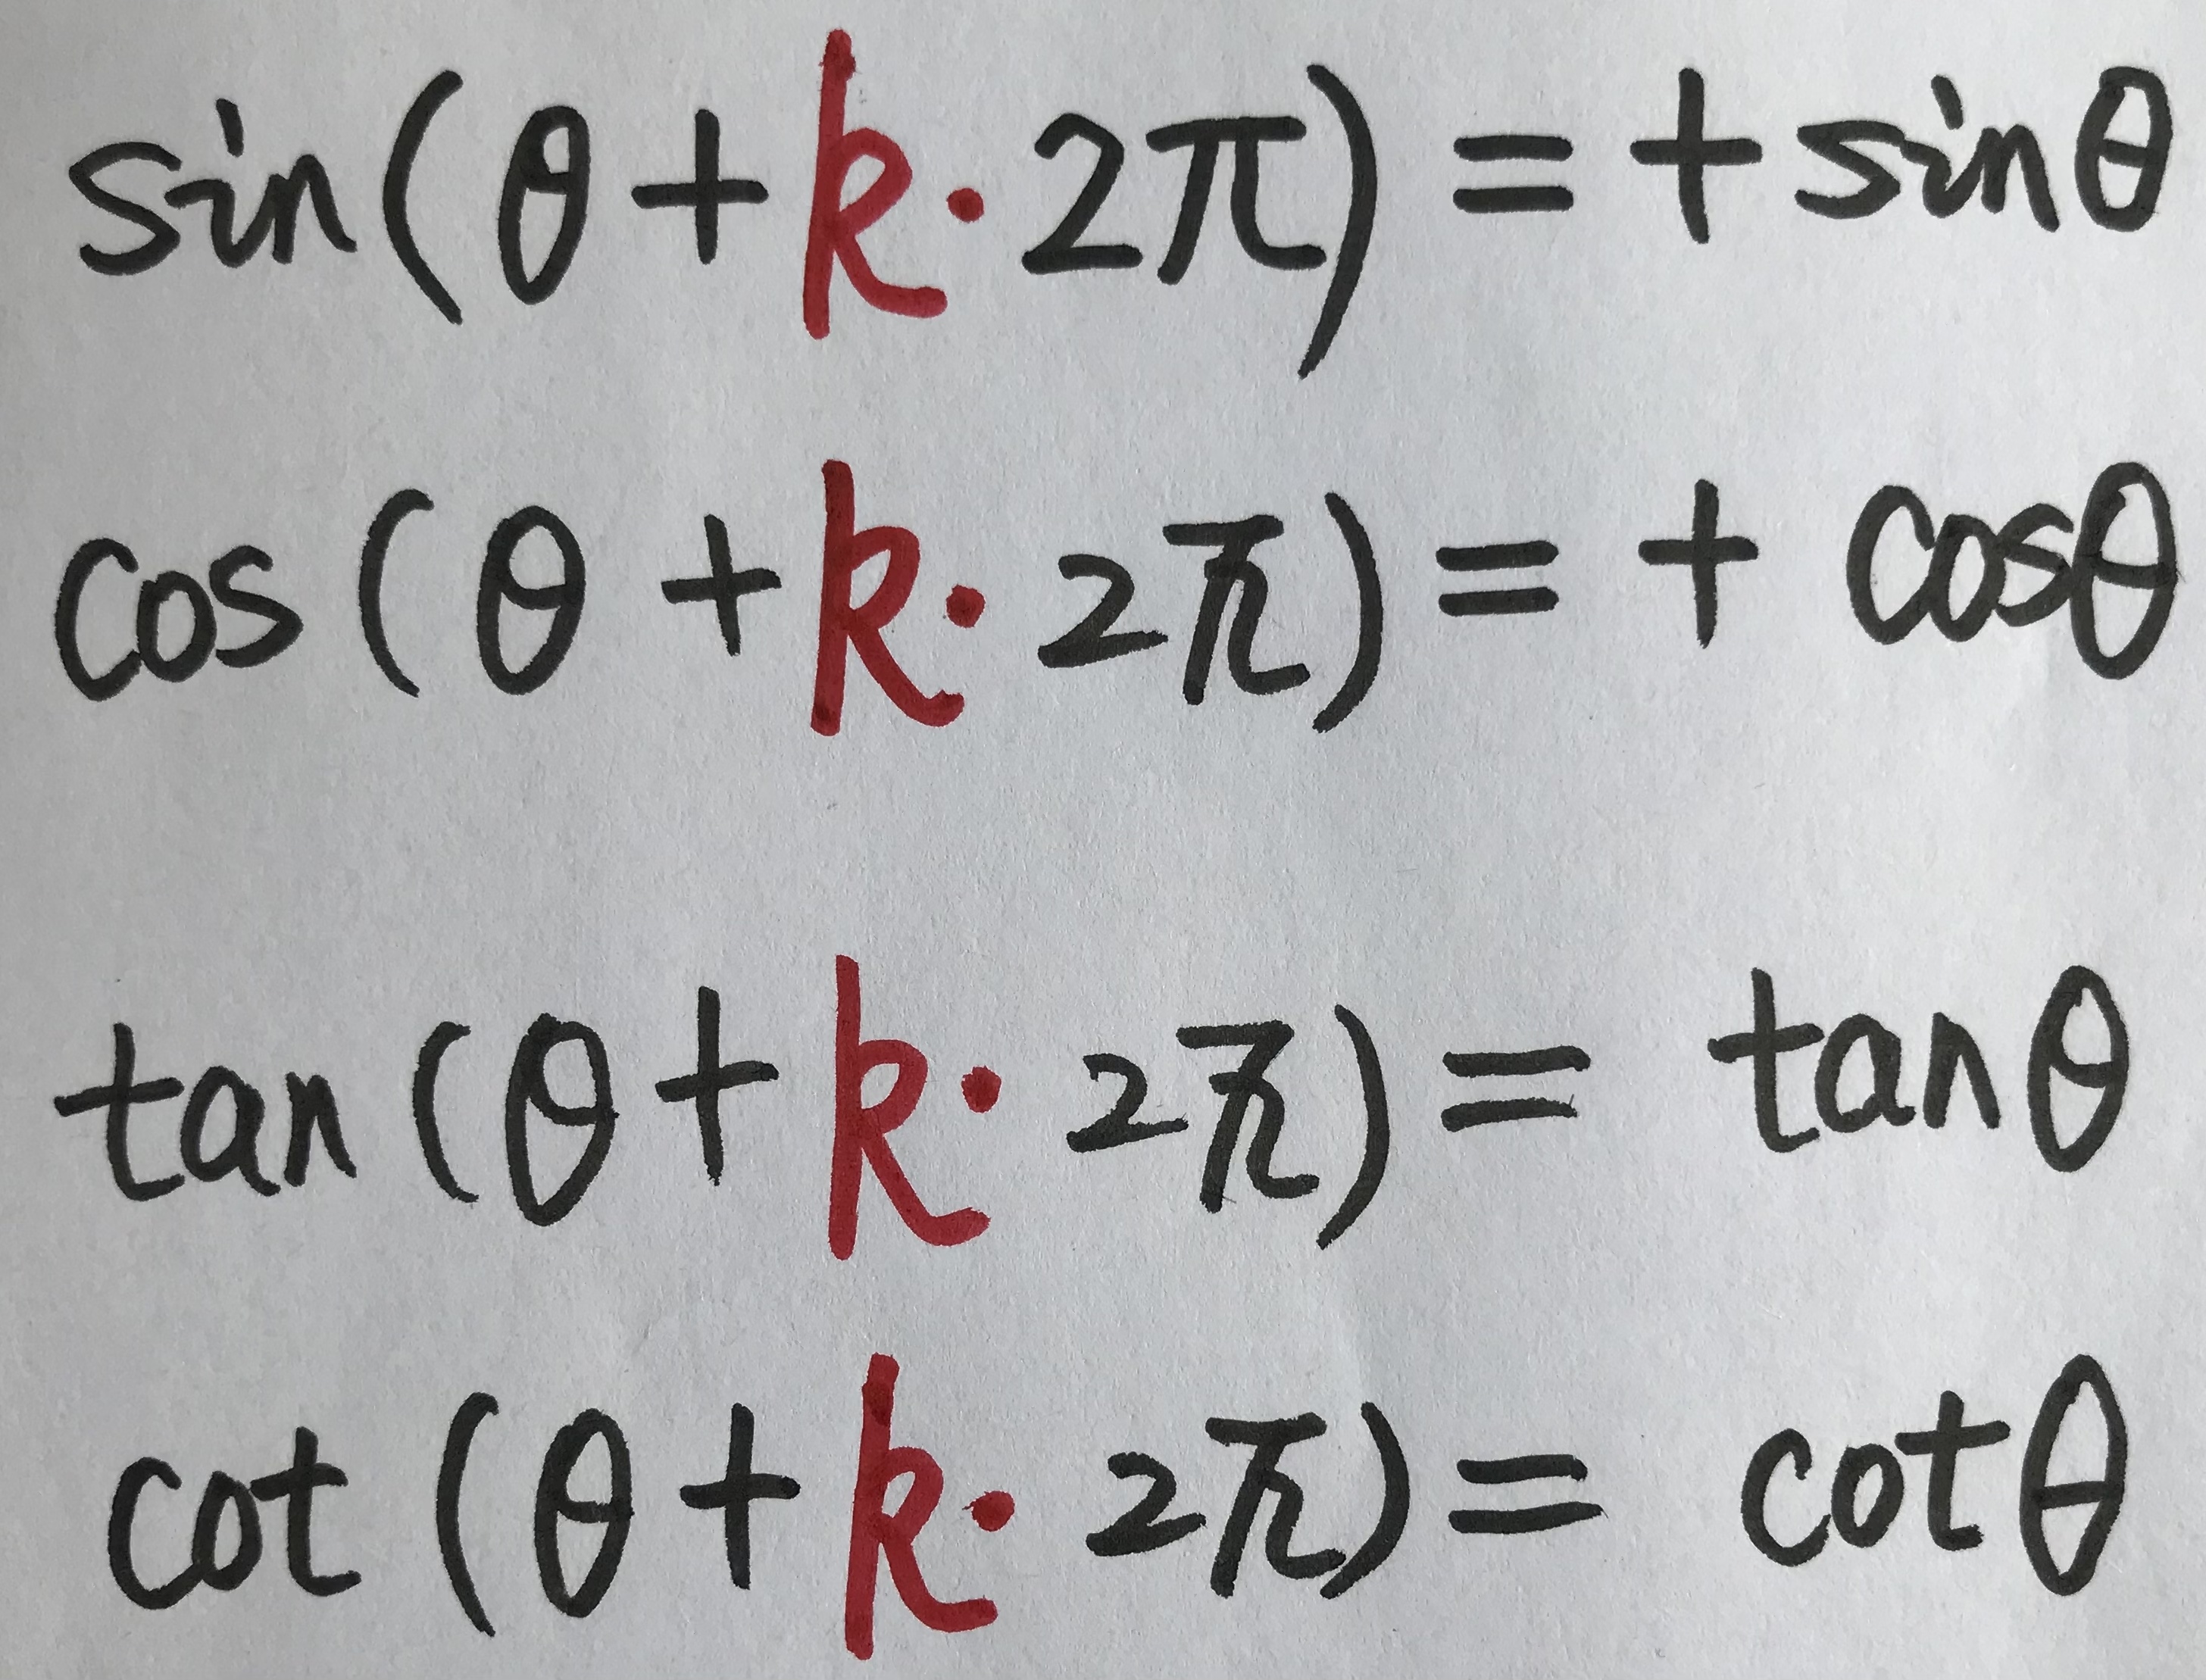 sin(θ+k·2π)=+sinθ
cos(θ+k·2π)=+cosθ
tan(θ+k·2π)=tanθ
cot(θ+k·2π)=cotθ